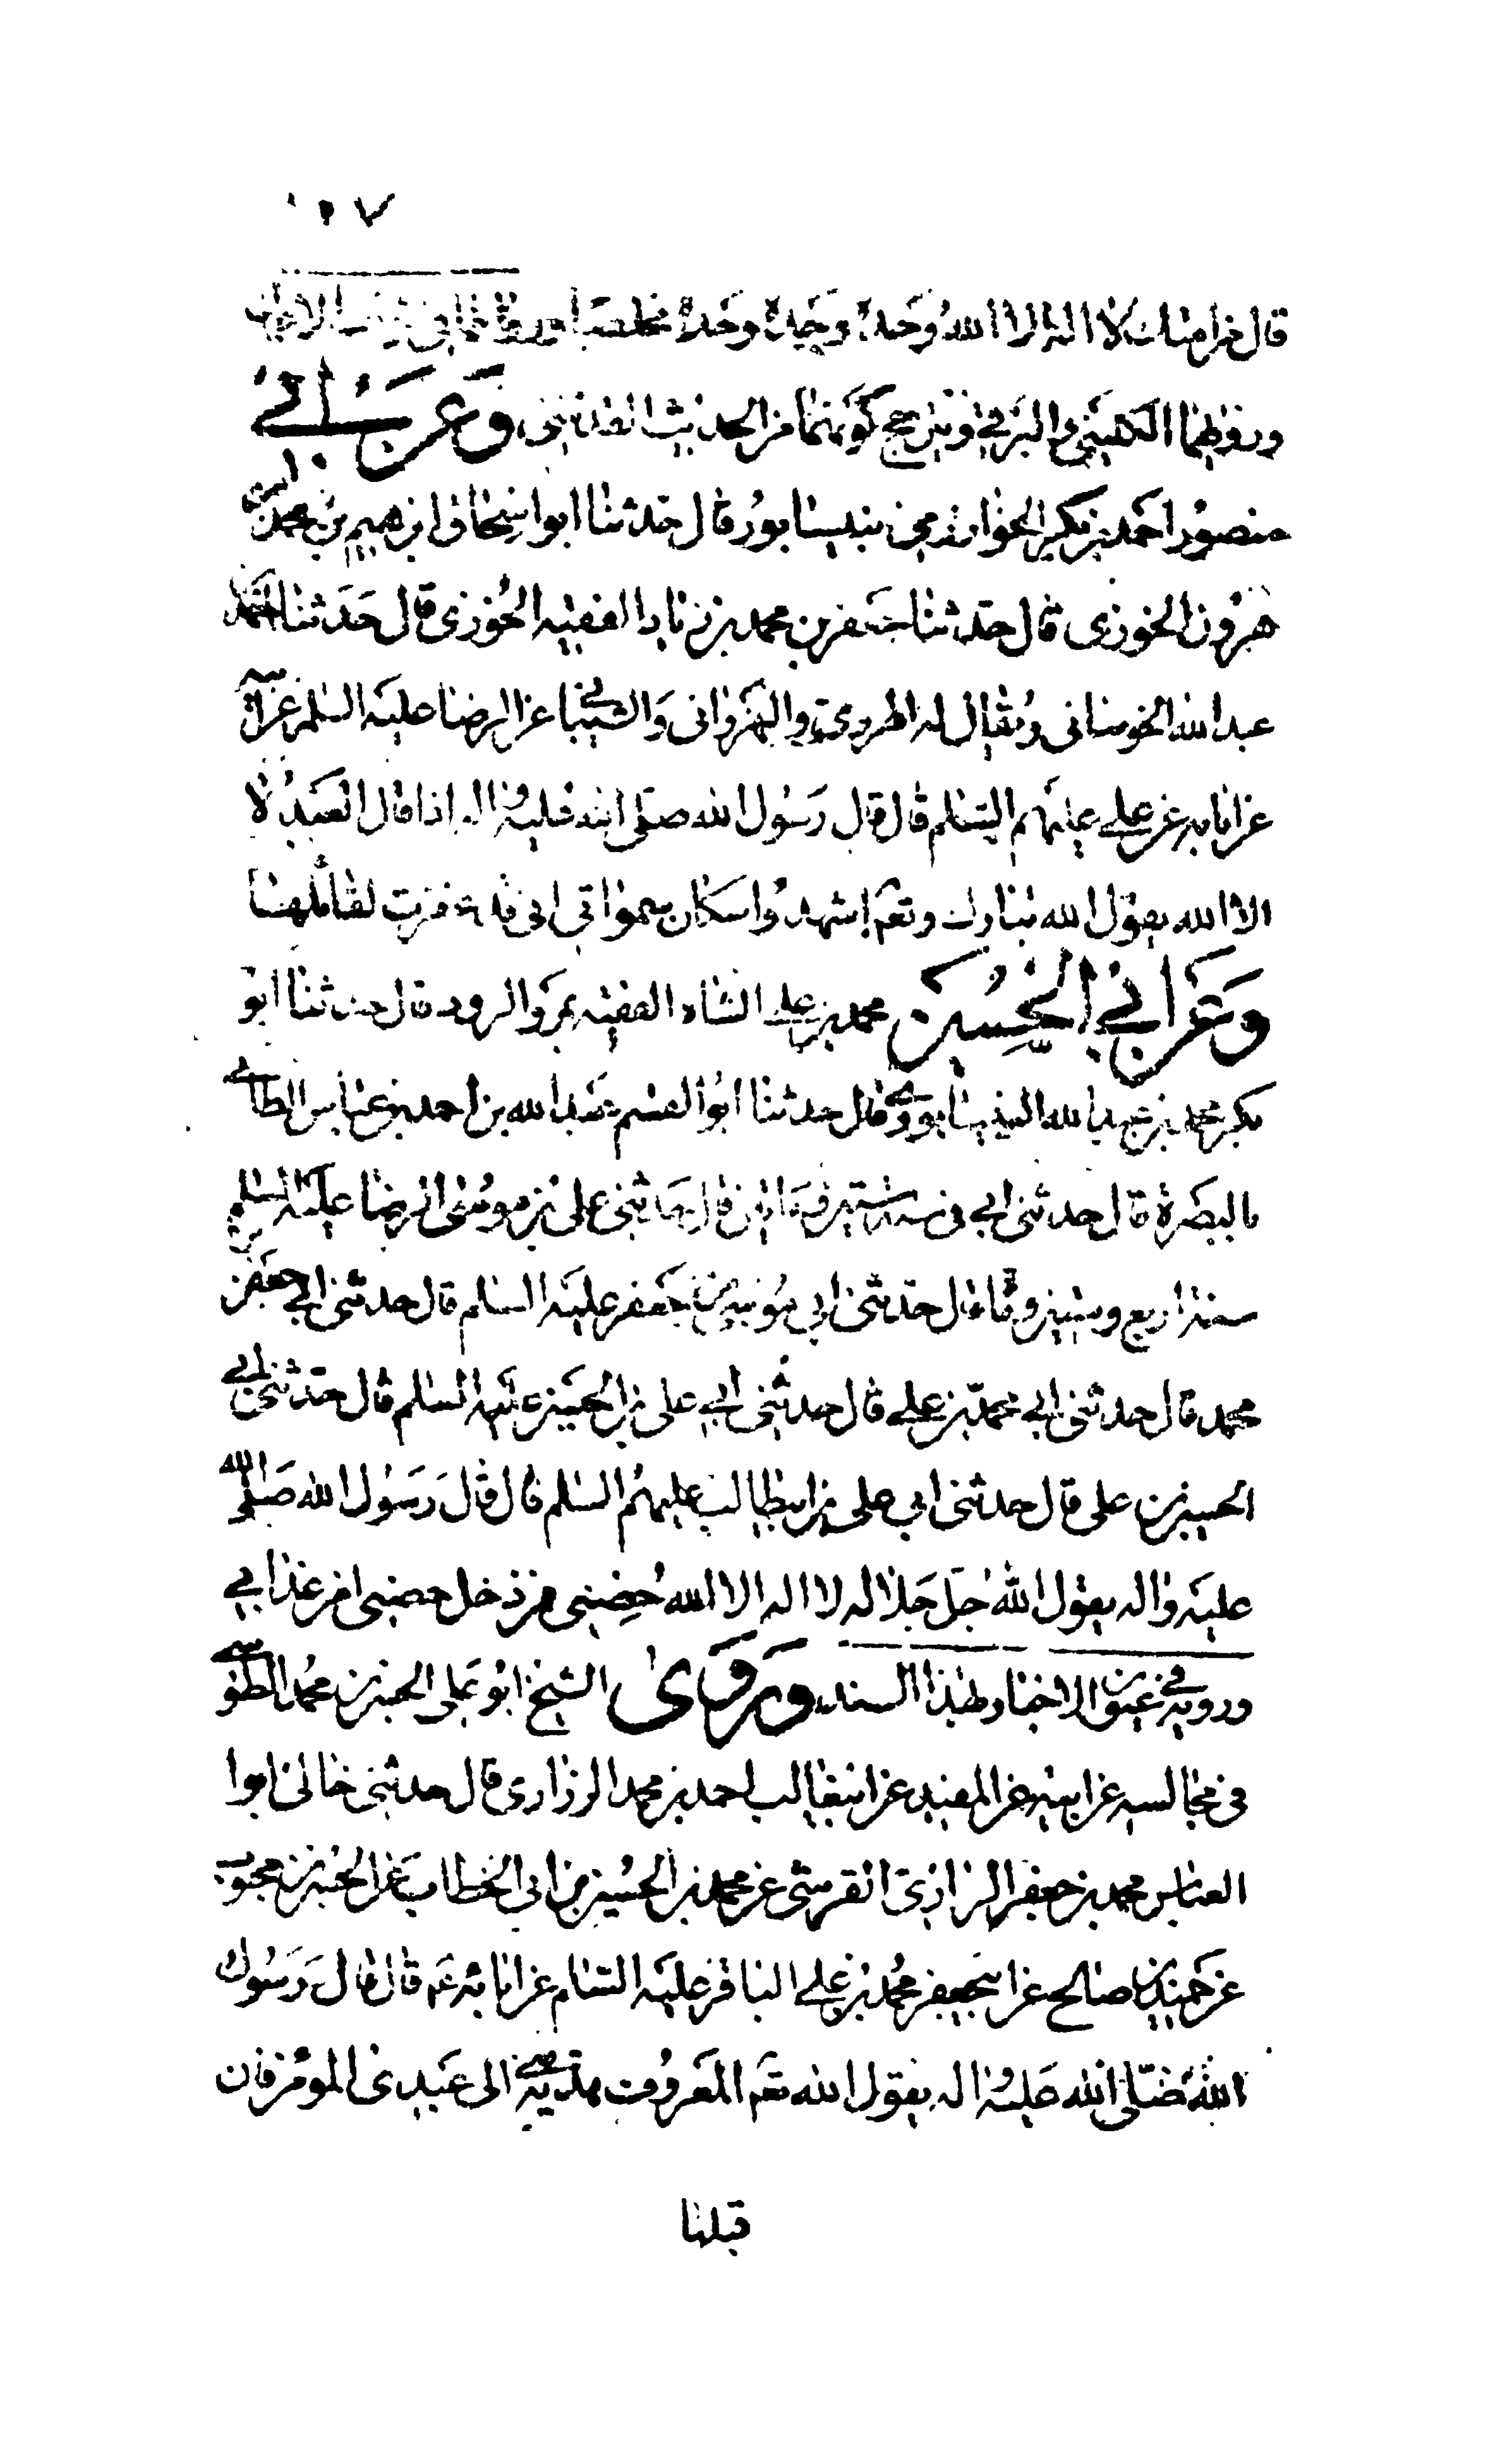 قال خدامتك لا اله الا الله وحده وحده وحده مخلصا
ورواهما الكليني والبرقي من الحديث القدسي وعن ابي
منصور احمد بن بكر الخوري بنيسابور قال حدثنا ابو اسحاق ابرهيم بن محمد بن
هرون الخوزي قال حدثنا جعفر بن محمد بن زياد الفقيه الخوزي قال حدثنا احمد بن
عبد الله ويقال له الهروي والنهرواني والشيباني عن الرضا عليه السلم عن ابيه
عن ابائه عن علي عليهم السلم قال قال رسول الله صلى الله عليه واله اذا قال العبد لا
الا الله يقول الله تبارك وتعم اشهدوا سكان سمواتي اني قد غفرت لقائلها
وعن ابي الحسين محمد بن علي الشاه الفقيه بمرو الرود قال حدثنا ابو
بكر محمد بن عبد الله النيسابوري قال حدثنا ابو القسم عبد الله بن احمد بن عباس الطائي
بالبصرة قال حدثني ابي في سنة ستين وماتين قال حدثني علي بن موسى الرضا عليه السلم
سنة اربع وتسعين وماة قال حدثني ابي موسى بن جعفر عليه السلم قال حدثني ابي جعفر بن
محمد قال حدثني ابي محمد بن علي قال حدثني ابي علي بن الحسين عليهم السلم قال حدثني ابي
الحسين بن علي قال حدثني ابي علي بن ابيطالب عليهم السلم قال قال رسول الله صلى الله
عليه واله يقول الله جل جلاله لا اله الا الله حصني من دخل حصني امن عذابي
ورويه في عيون الاخبار بهذا السند وروى الشيخ ابو علي الحسن بن محمد الطوسي
في مجالسه عن ابيه عن المفيد عن ابيغالب احمد بن محمد الزراري قال حدثني خالي ابوا
العباس محمد بن جعفر الرزاز القرشي عن محمد بن الحسين بن ابي الخطاب عن الحسن بن محبوب
عن جميل بن صالح عن ابيجعفر محمد بن علي الباقر عليه السلم عن ابائه عم قال قال رسول
الله صلى الله عليه واله يقول الله تعم المعروف هدية مني الى عبدي المؤمن فان
قبلها